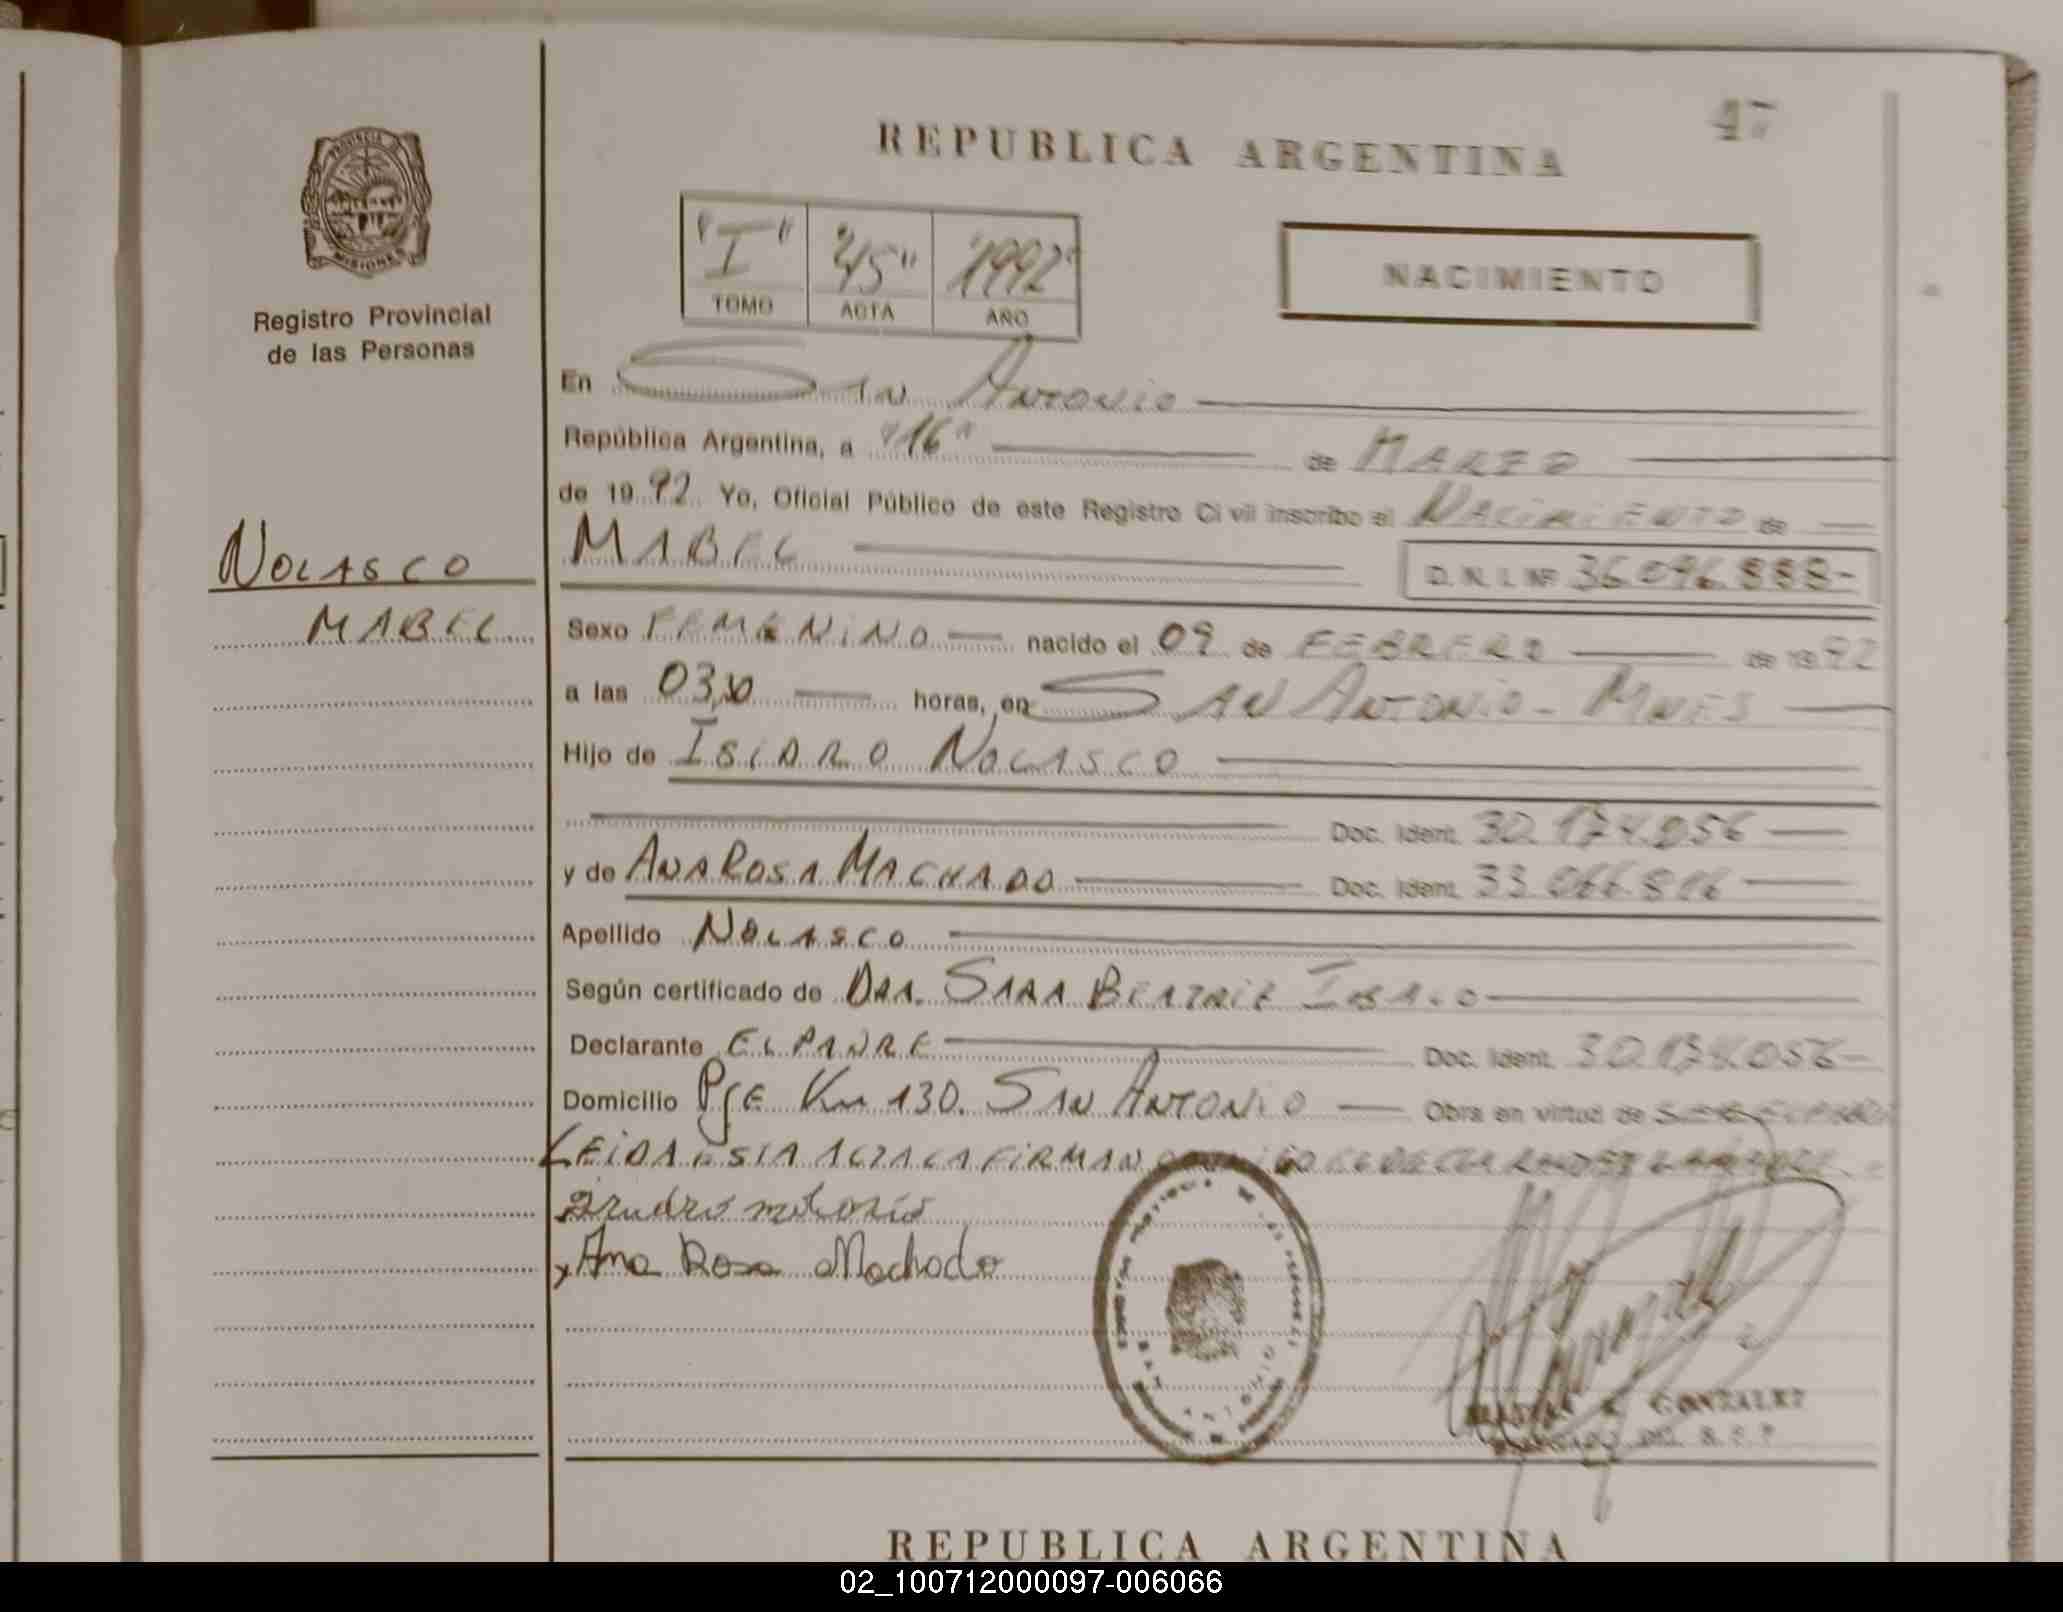 47
REPUBLICA ARGENTINA
PROVINCIA DE
MISIONES
Registro Provincial
de las Personas
"I" "45" "1992"
TOMO ACTA AÑO
NACIMIENTO
En SAN ANTONIO
República Argentina, a "16" de MARZO
de 1992 Yo, Oficial Público de este Registro Civil inscribo el NACIMIENTO de
NOLASCO
MABEL
MABEL
D. N. I. Nº 36.096.888-
Sexo FEMENINO nacido el 09 de FEBRERO de 1992
a las 03,30 horas, en SAN ANTONIO - MNES
Hijo de ISIDRO NOLASCO
Doc. Ident. 30.174.056
y de ANA ROSA MACHADO Doc. Ident. 33.066.816
Apellido NOLASCO
Según certificado de DRA. SARA BEATRIZ
Declarante EL PADRE Doc. Ident. 30.174.056-
Domicilio Pje Km 130. SAN ANTONIO Obra en virtud de
LEIDA ESTA ACTA LA FIRMAN
x Ana Rosa Machado
SAN ANTONIO
GONZALEZ
REPUBLICA ARGENTINA
02_100712000097-006066